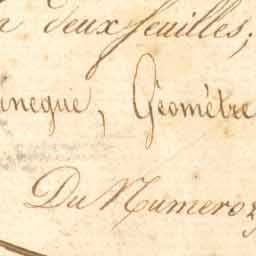 deux feuilles;
Géomètre
Du Numero